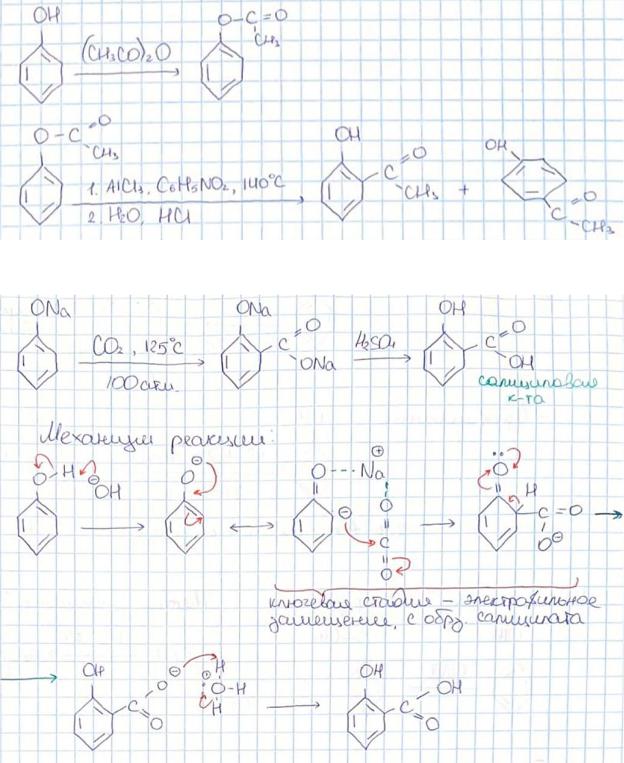 OH
(CH₃CO)₂O
O-C=O
CH₃
O-C=O
CH₃
1. AlCl₃, C₆H₅NO₂, 140°C
2. H₂O, HCl
OH
C=O
CH₃
+
OH
C=O
-CH₃
ONa
CO₂, 125°C
100 атм.
ONa
C=O
ONa
H₂SO₄
OH
C=O
OH
салициловая
к-та
Механизм реакции:
O-H ⊖OH
O⊖
O---Na⊕
⊖
O
C
O
O
H
C=O
O⊖
ключевая стадия – электрофильное
замещение, с обр. салицилата
OH
C
O
O⊖
H
⊕O-H
H
OH
C
OH
O